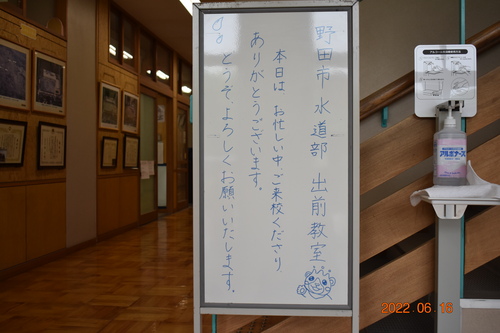 野田市水道部 出前教室
本日は お忙しい中、ご来校くださり
ありがとうございます。
どうぞ、よろしくお願いいたします。
アルボナース
2022.06.16